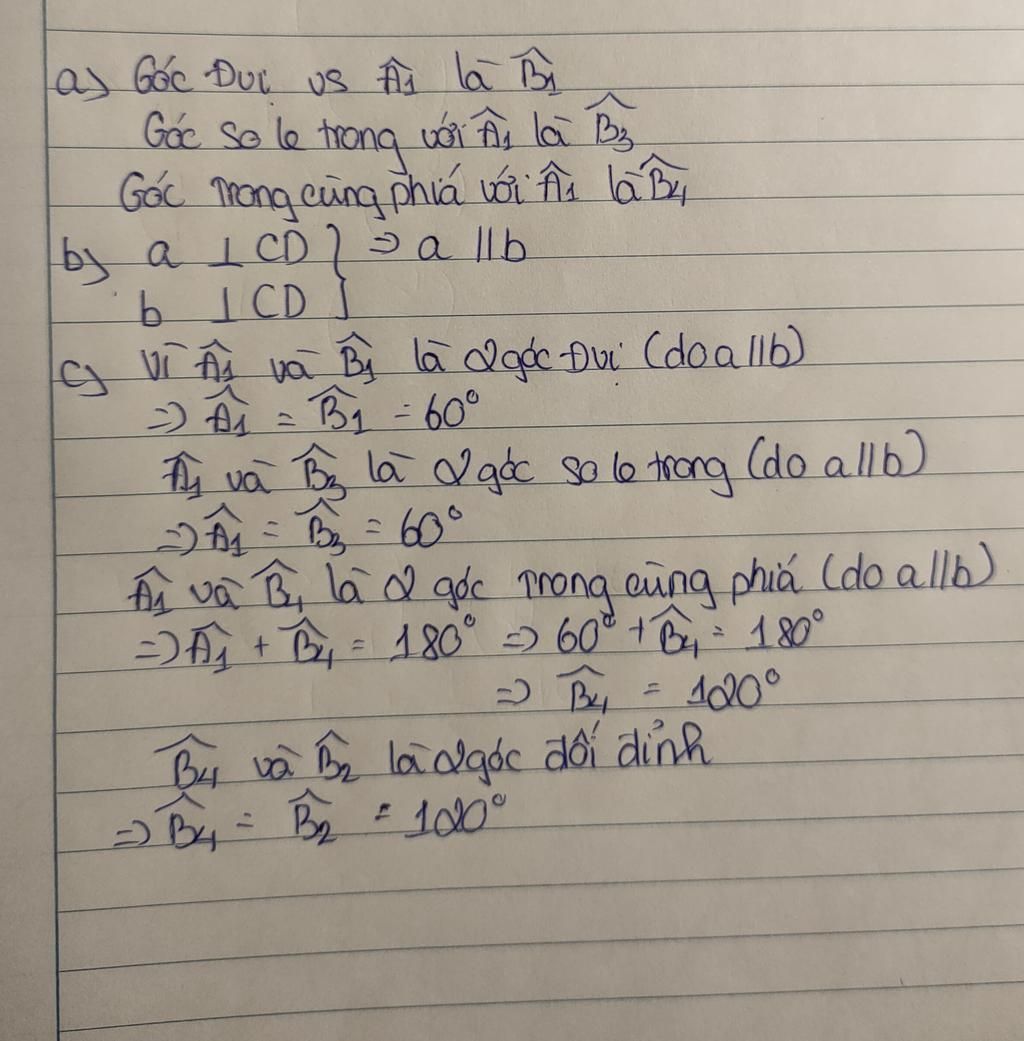 a) Góc ĐVị vs Â1 là B̂1
Góc so le trong với Â1 là B̂3
Góc Trong cùng phiá với Â1 là B̂4
b) a ⊥ CD } => a // b
b ⊥ CD
c) Vì Â1 và B̂1 là 2 góc ĐVị (do a//b)
=> Â1 = B̂1 = 60°
Â1 và B̂3 là 2 góc so le trong (do a//b)
=> Â1 = B̂3 = 60°
Â1 và B̂4 là 2 góc Trong cùng phiá (do a//b)
=> Â1 + B̂4 = 180° => 60° + B̂4 = 180°
=> B̂4 = 120°
B̂4 và B̂2 là 2 góc đối đỉnh
=> B̂4 = B̂2 = 120°